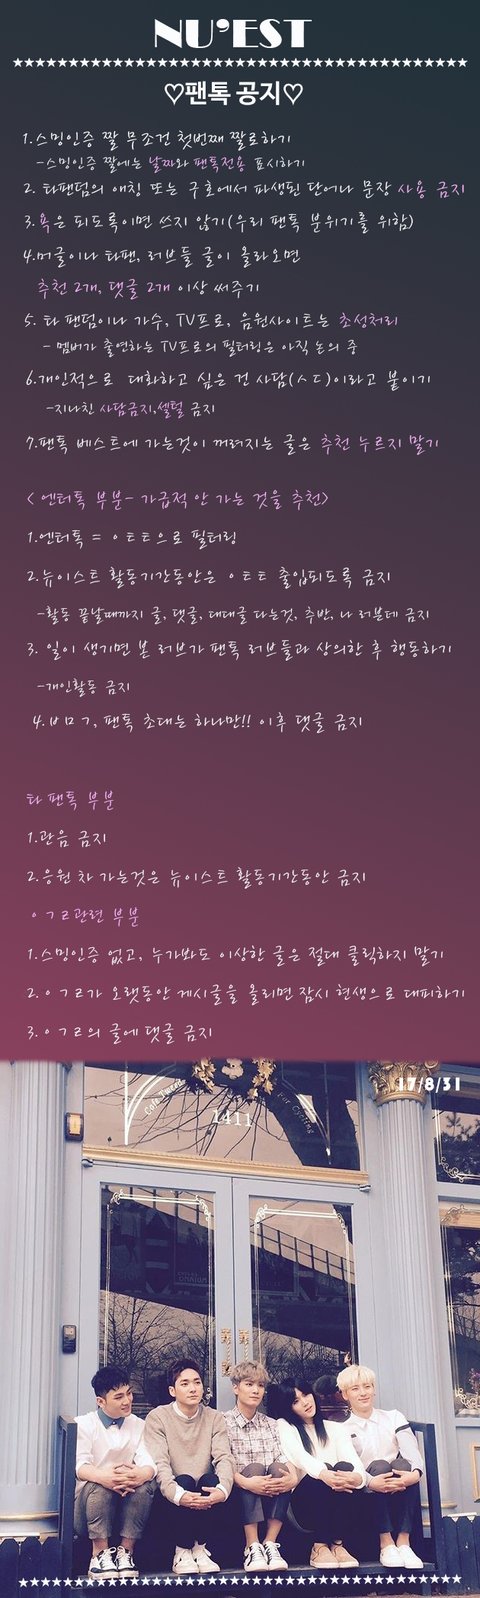 NU'EST
♡팬톡 공지♡
1.스밍인증 짤 무조건 첫번째 짤로하기
-스밍인증 짤에는 날짜와 팬톡전용 표시하기
2. 타팬덤의 애칭 또는 구호에서 파생된 단어나 문장 사용 금지
3.욕은 되도록이면 쓰지 않기(우리 팬톡 분위기를 위함)
4.머글이나 타팬, 러브들 글이 올라오면
추천 2개, 댓글 2개 이상 써주기
5. 타 팬덤이나 가수, TV프로, 음원사이트는 초성처리
- 멤버가 출연하는 TV프로의 필터링은 아직 논의 중
6.개인적으로 대화하고 싶은 건 사담(ㅅㄷ)이라고 붙이기
-지나친 사담금지,셀털 금지
7.팬톡 베스트에 가는것이 꺼려지는 글은 추천 누르지 말기
< 엔터톡 부분- 가급적 안 가는 것을 추천>
1.엔터톡 = ㅇㅌㅌ으로 필터링
2.뉴이스트 활동기간동안은 ㅇㅌㅌ 출입되도록 금지
-활동 끝날때까지 글, 댓글, 대댓글 다는것, 추반, 나 러분데 금지
3. 일이 생기면 본 러브가 팬톡 러브들과 상의한 후 행동하기
-개인활동 금지
4.ㅂㅁㄱ, 팬톡 초대는 하나만!! 이후 댓글 금지
타 팬톡 부분
1.관음 금지
2.응원 차 가는것은 뉴이스트 활동기간동안 금지
ㅇㄱㄹ관련 부분
1.스밍인증 없고, 누가봐도 이상한 글은 절대 클릭하지 말기
2.ㅇㄱㄹ가 오랫동안 게시글을 올리면 잠시 현생으로 대피하기
3.ㅇㄱㄹ의 글에 댓글 금지
17/8/31
For Cycling
1411